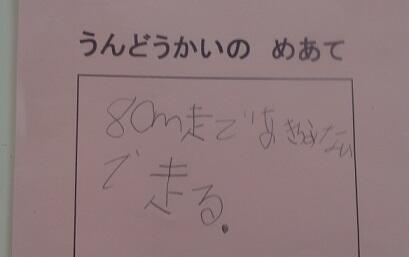 うんどうかいの めあて
80m走であきらめない
で走る.